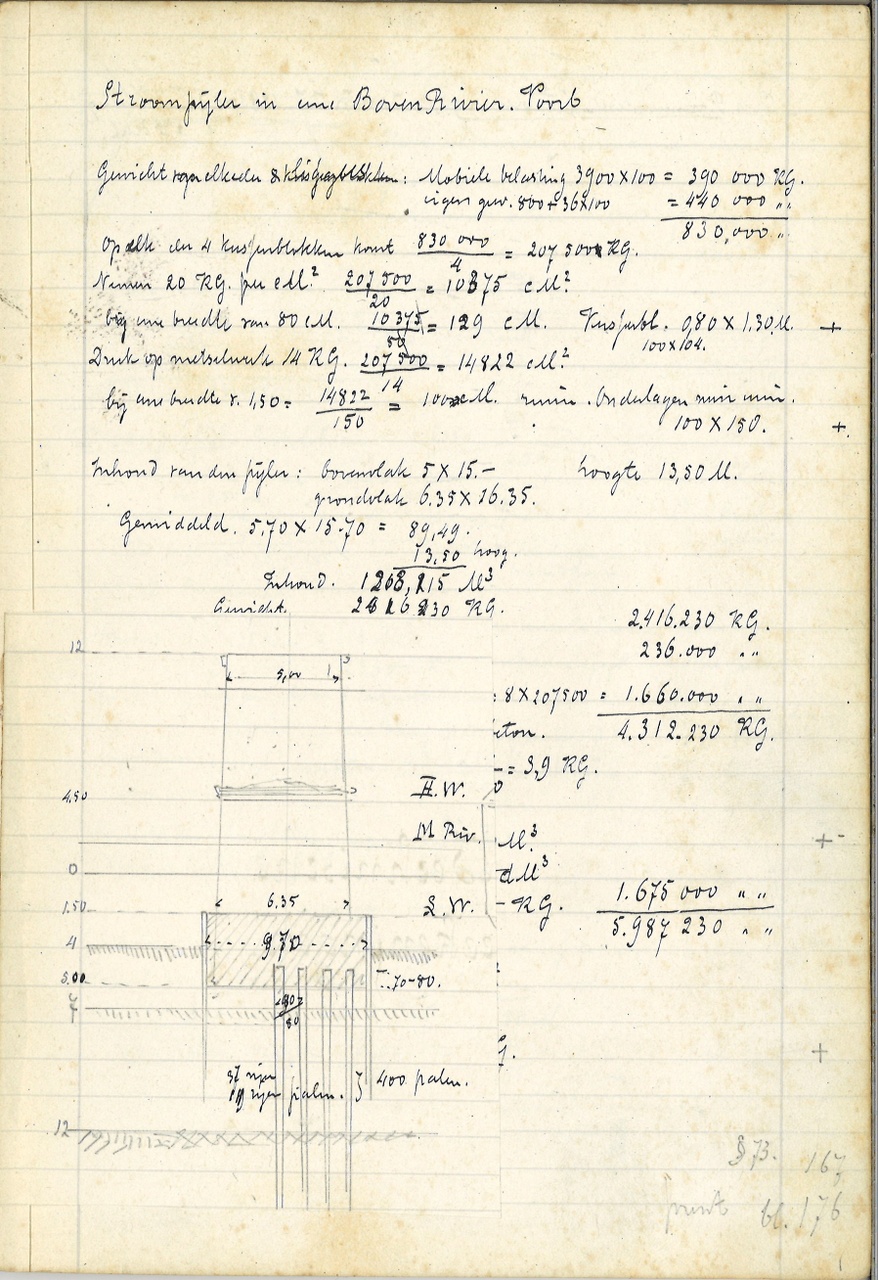 Stroompijler in eene BovenRivier. Voorb
Gewicht op elk der : Mobiele belasting 3900 x 100 = 390 000 KG.
eigen gew. 800 + 36 x 100 = 440 000 "
830,000 "
Op elk der 4 kussenblokken komt 830 000 / 4 = 207 500 KG.
Nemen 20 KG. per cM.² 207 500 / 20 = 10375 cM.²
bij eene breedte van 80 cM. 10375 / 80 = 129 cM. Kussenbl. 0,80 x 1.30 M. +
100 x 104.
Druk op metselwerk 14 KG. 207 500 / 14 = 14822 cM.²
bij eene breedte v. 1,50 = 14822 / 150 = 100 cM. . Onderlagen
100 x 150. +.
Inhoud van den pijler: bovenvlak 5 x 15.- hoogte 13,50 M.
grondvlak 6.35 x 16.35.
Gemiddeld. 5.70 x 15.70 = 89,49.
13,50 hoog.
Inhoud. 1208,115 M³
Gewicht. 2416 230 KG.
2.416.230 KG.
236.000 "
12
5,00
: 8 x 207500 = 1.660.000 "
eton. 4.312.230 KG.
= 3,9 KG.
4.50 H.W. 0
M Riv. M.³ +-
0 dM³
1.50 6.35 L.W. - KG. 1.675 000 "
5.987 230 "
4 9.70
5.00 70-80.
7
80
rijen
rijen palen. } 400 palen.
+
12
§ 73. 167
bl. 176